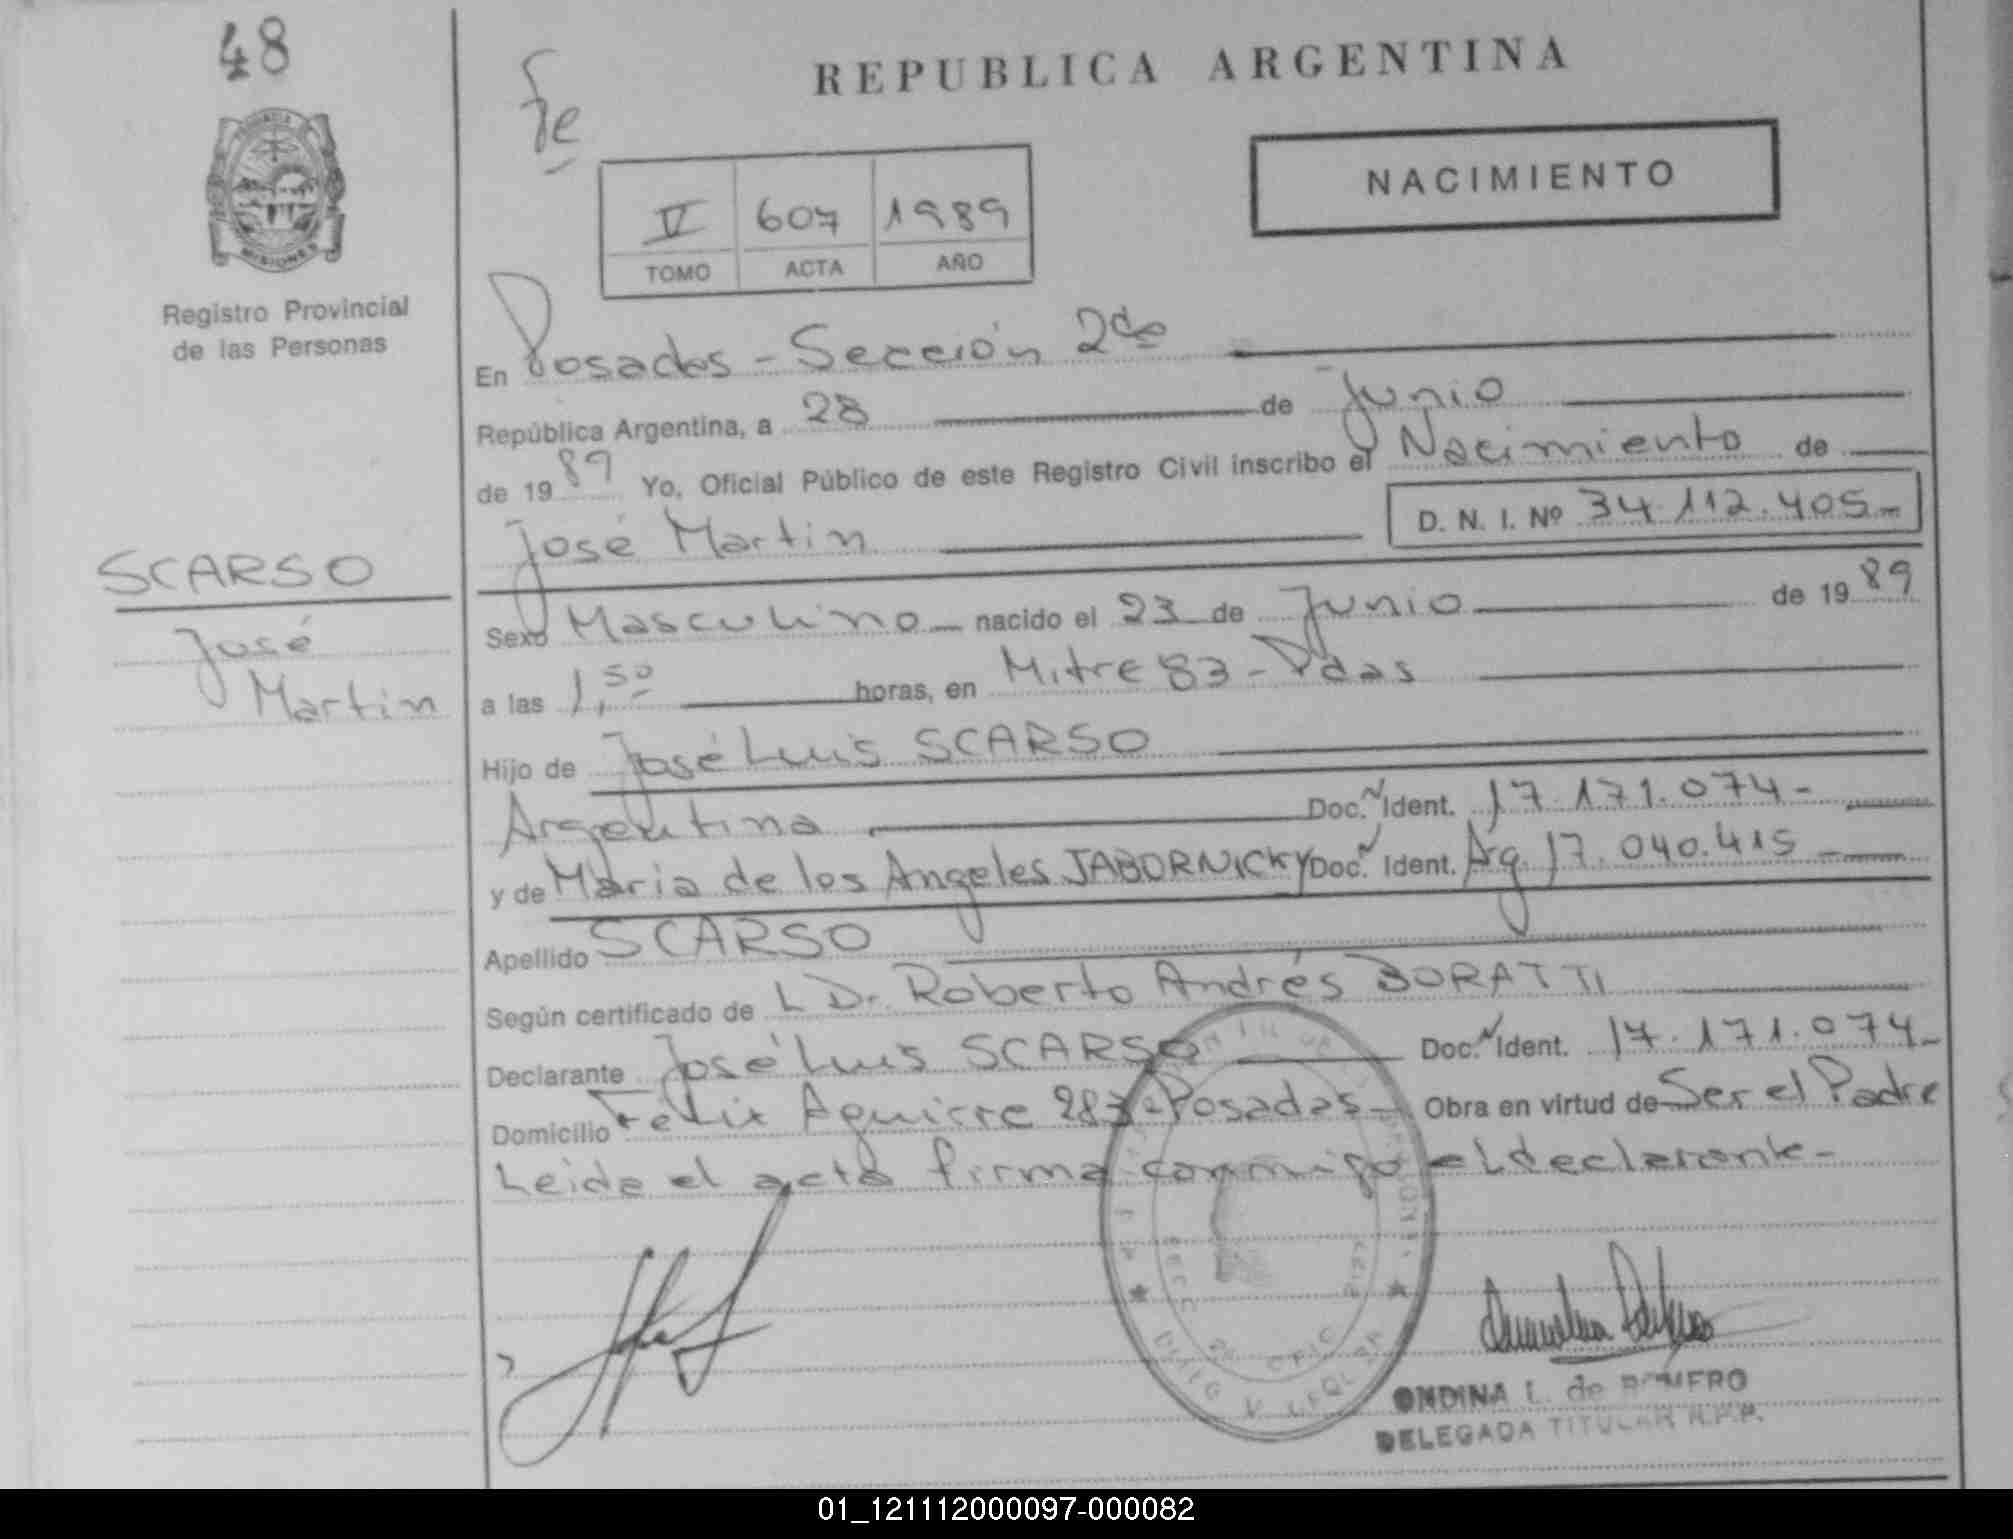 48
REPUBLICA ARGENTINA
NACIMIENTO
V 607 1989
TOMO ACTA AÑO
MISIONES
Registro Provincial
de las Personas
En Posadas - Sección 2da
República Argentina, a 28 de Junio
de 1989 Yo, Oficial Público de este Registro Civil inscribo el Nacimiento de
José Martin D. N. I. Nº 34.112.405.-
SCARSO
José
Martin
Sexo Masculino nacido el 23 de Junio de 1989
a las 1,50 horas, en Mitre 83 - Pdas
Hijo de José Luis SCARSO
Argentina Doc. Ident. 17.171.074-
y de Maria de los Angeles JABORNICKY Doc. Ident. Arg. 17.040.415
Apellido SCARSO
Según certificado de L Dr. Roberto Andrés BORATTI
Declarante José Luis SCARSO Doc. Ident. 17.171.074-
Domicilio Félix Aguirre 283 - Posadas - Obra en virtud de Ser el Padre
Leida el acta firma conmigo el declarante -
ONDINA L. de ROMERO
DELEGADA TITULAR R.P.P.
01_121112000097-000082